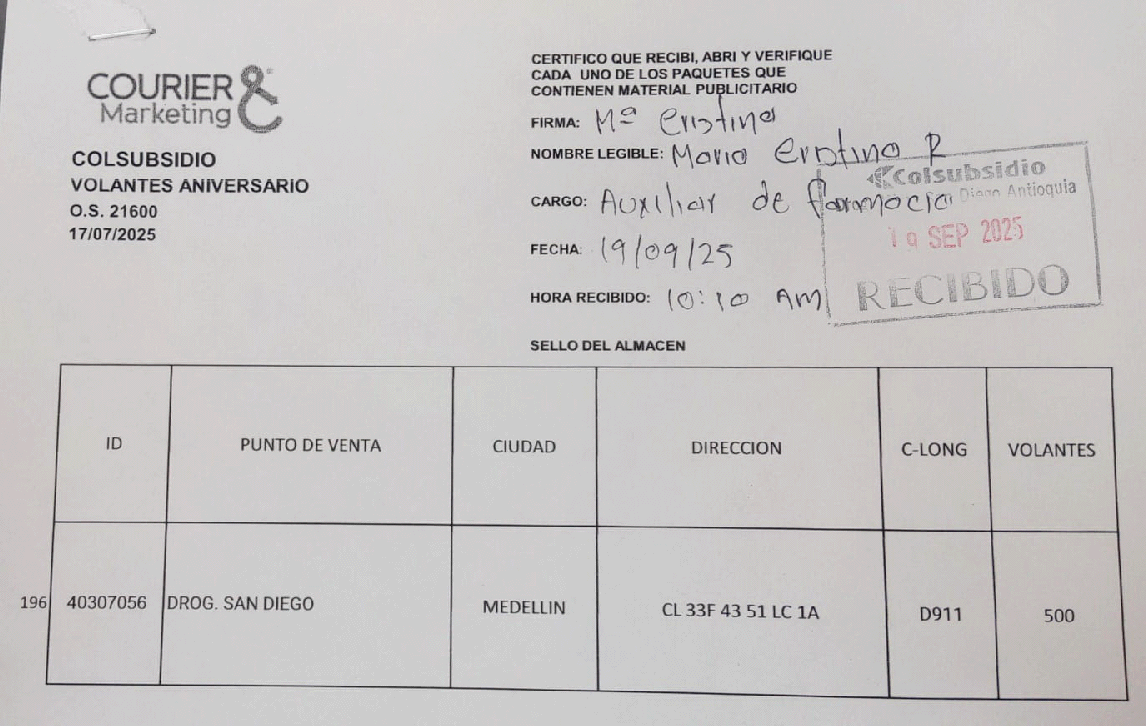 COURIER &
Marketing
COLSUBSIDIO
VOLANTES ANIVERSARIO
O.S. 21600
17/07/2025
CERTIFICO QUE RECIBI, ABRI Y VERIFIQUE
CADA UNO DE LOS PAQUETES QUE
CONTIENEN MATERIAL PUBLICITARIO
FIRMA: Mª Cristina
NOMBRE LEGIBLE: Maria Cristina R
CARGO: Auxiliar de farmacia
FECHA: 19/09/25
HORA RECIBIDO: 10:10 AM
Colsubsidio
Diego Antioquia
19 SEP 2025
RECIBIDO
SELLO DEL ALMACEN
ID PUNTO DE VENTA CIUDAD DIRECCION C-LONG VOLANTES
196 40307056 DROG. SAN DIEGO MEDELLIN CL 33F 43 51 LC 1A D911 500